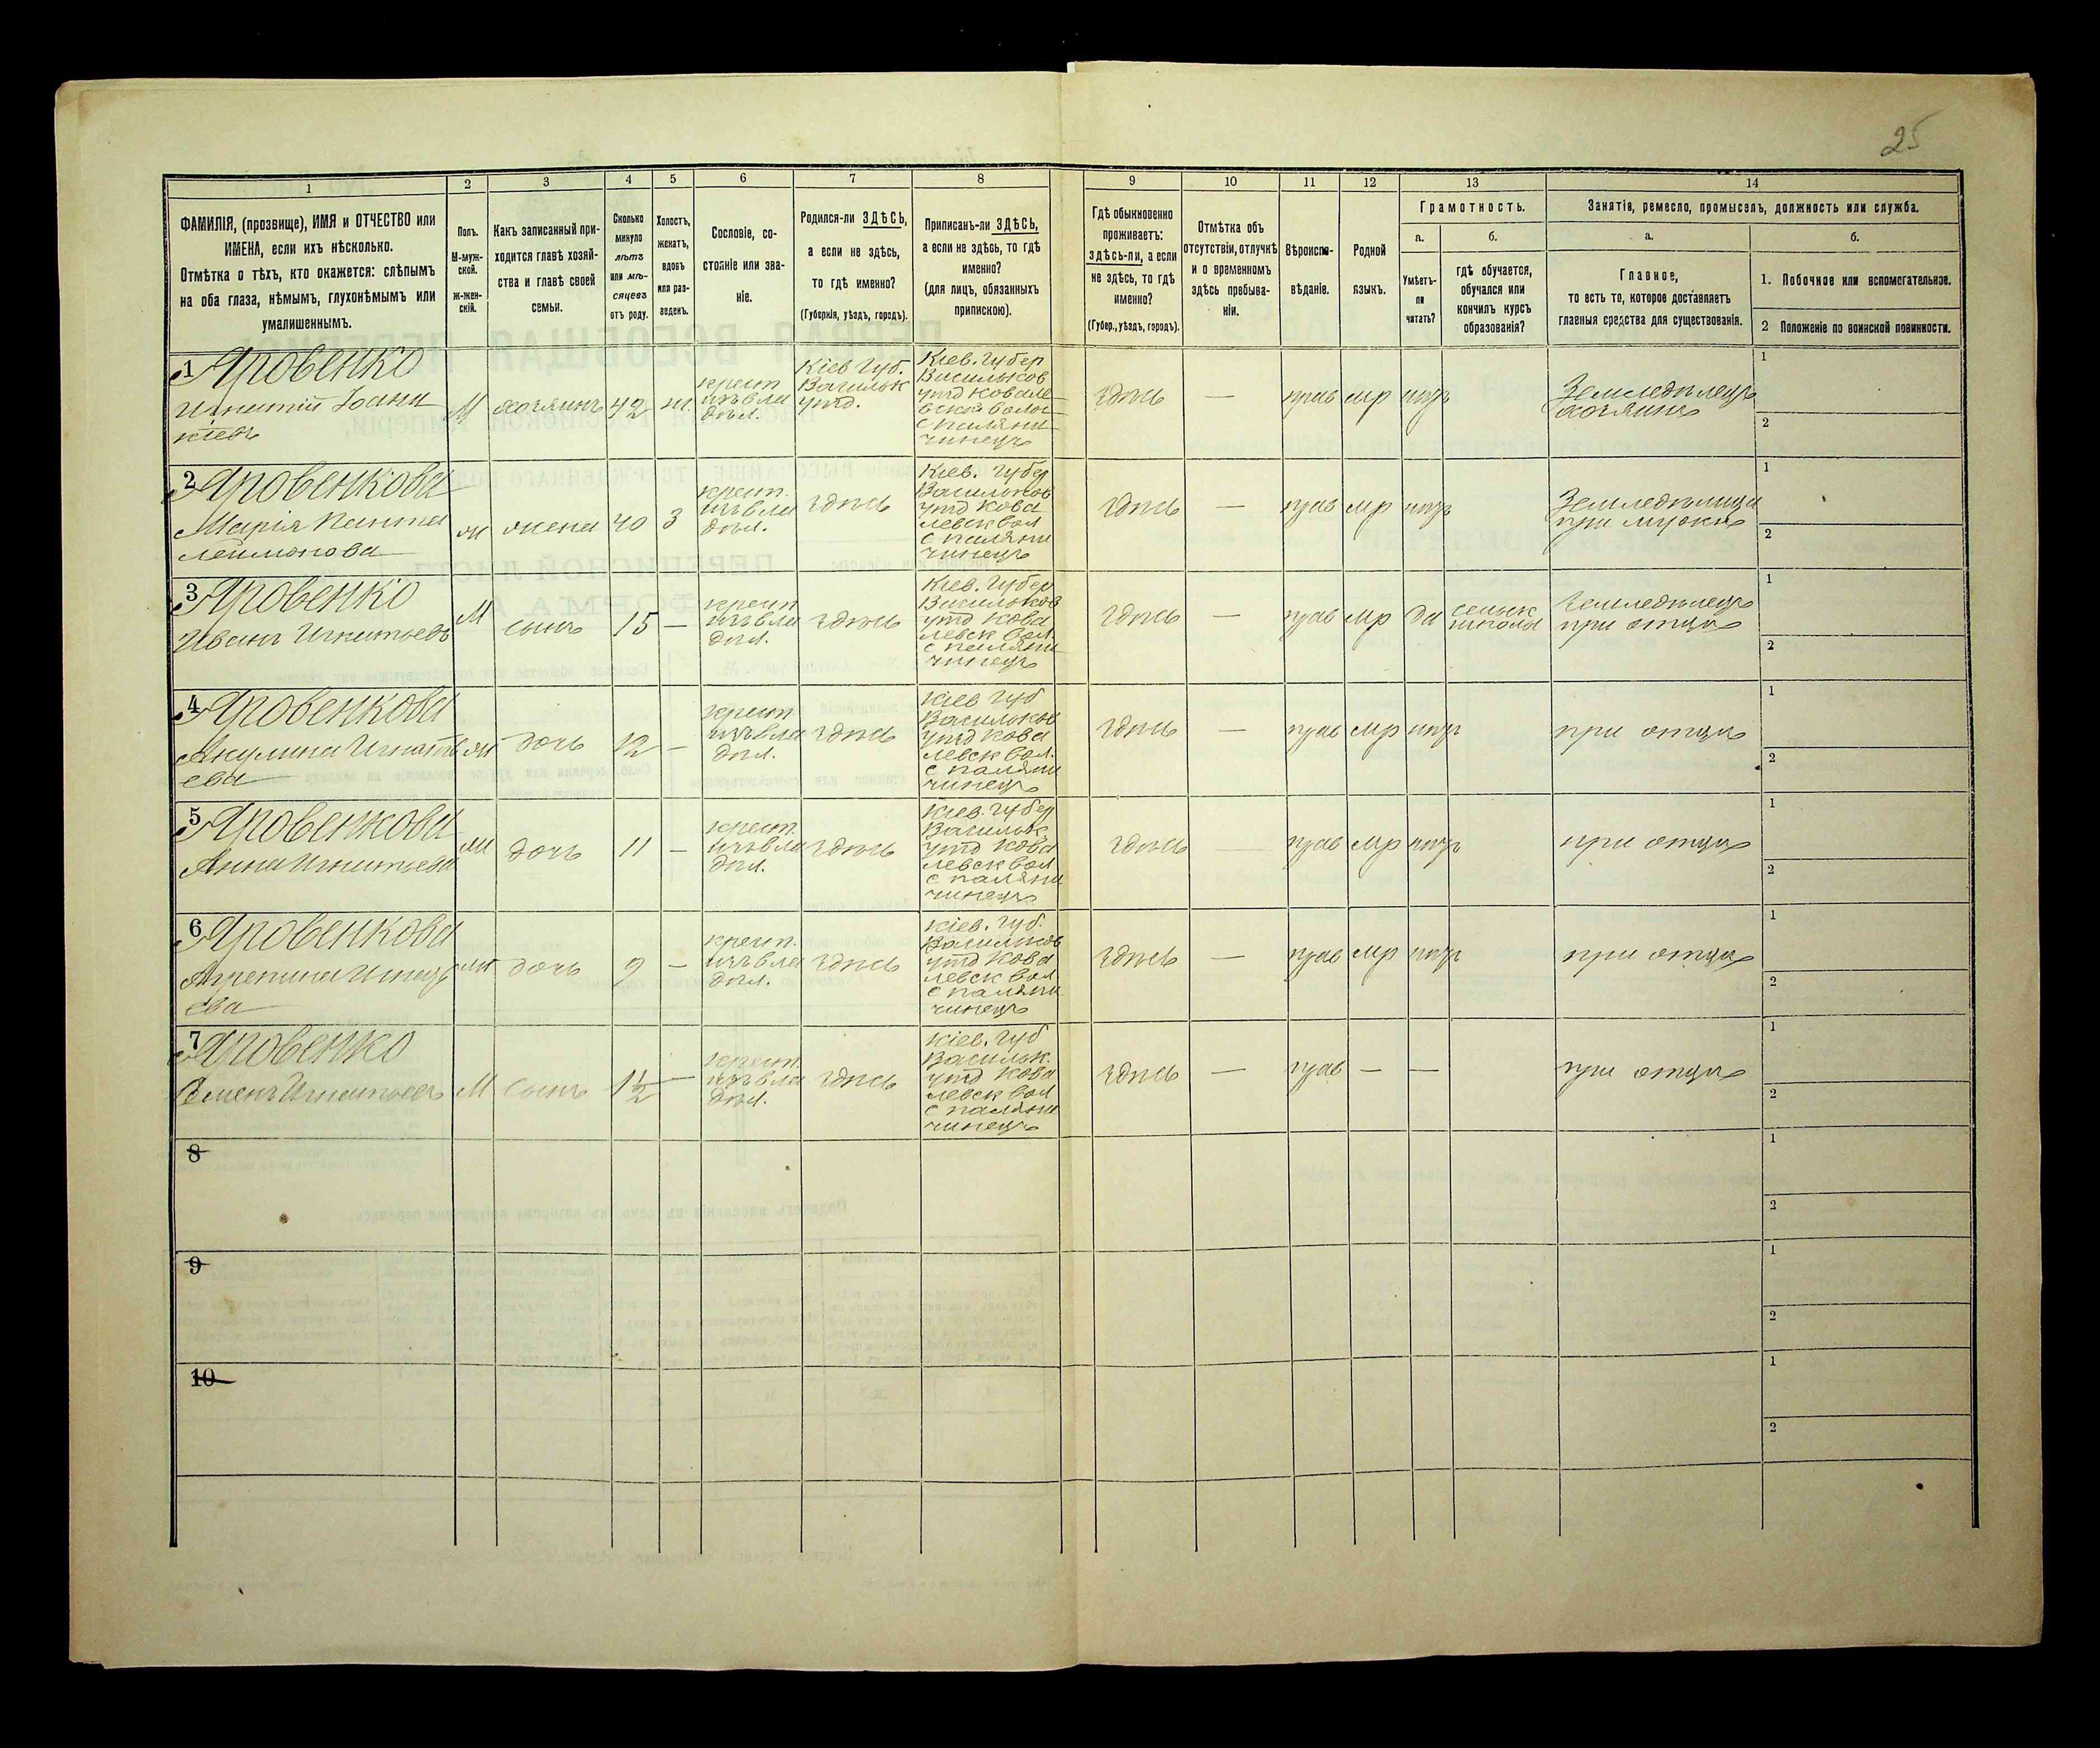 25
1 2 3 4 5 6 7 8 9 10 11 12 13 14
ФАМИЛІЯ, (прозвище), ИМЯ и ОТЧЕСТВО или
ИМЕНА, если ихъ нѣсколько.
Отмѣтка о тѣхъ, кто окажется: слѣпымъ
на оба глаза, нѣмымъ, глухонѣмымъ или
умалишеннымъ.
Полъ.
М-муж-
ской.
Ж-жен-
скій.
Какъ записанный при-
ходится главѣ хозяй-
ства и главѣ своей
семьи.
Сколько
минуло
лѣтъ
или мѣ-
сяцевъ
отъ роду.
Холостъ,
женатъ,
вдовъ
или раз-
веденъ.
Сословіе, со-
стояніе или зва-
ніе.
Родился-ли ЗДѢСЬ,
а если не здѣсь,
то гдѣ именно?
(Губернія, уѣздъ, городъ).
Приписанъ-ли ЗДѢСЬ,
а если не здѣсь, то гдѣ
именно?
(для лицъ, обязанныхъ
припискою).
Гдѣ обыкновенно
проживаетъ:
ЗДѢСЬ-ли, а если
не здѣсь, то гдѣ
именно?
(Губер., уѣздъ, городъ).
Отмѣтка объ
отсутствіи, отлучкѣ
и о временномъ
здѣсь пребыва-
ніи.
Вѣроиспо-
вѣданіе.
Родной
языкъ.
Грамотность.
а.
Умѣетъ-
ли
читать?
б.
гдѣ обучается,
обучался или
кончилъ курсъ
образованія?
Занятіе, ремесло, промыселъ, должность или служба.
а.
Главное,
то есть то, которое доставляетъ
главныя средства для существованія.
б.
1. Побочное или вспомогательное.
2 Положеніе по воинской повинности.
1 Яровенко
Игнатій Іоани
кіевъ
М
хозяинъ
42
ж.
крест
изъ вла
дѣл.
Кіев Губ.
Васильк
уѣзд.
Кіев. Губер
Васильков
уѣзд Ковале
вской волос
с паляни
чинецъ
здѣсь
—
прав
мр
нѣтъ
Земледѣлецъ
хозяинъ
1
2
2 Яровенкова
Марія Панте
леймонова
ж
жена
40
З
крест.
изъ вла
дѣл.
здѣсь
Кіев. Губер
Васильков
уѣзд Кова
левск вол
с паляни
чинецъ
здѣсь
—
прав
мр
нѣтъ
Земледѣлица
при мужѣ
1
2
3 Яровенко
Иванъ Игнатьевъ
М
сынъ
15
—
крест
изъ вла
дѣл.
здѣсь
Кіев. Губер
Васильков
уѣзд Кова
левск вол.
с паляни
чинецъ
здѣсь
—
прав
мр
да
сельск
школа
Земледѣлецъ
при отцѣ
1
2
4 Яровенкова
Акулина Игнать
ева
ж
дочь
12
—
крест
изъ вла
дѣл.
здѣсь
Кіев Губ
Васильков
уѣзд Кова
левск вол.
с паляни
чинецъ
здѣсь
—
прав
мр
нѣтъ
при отцѣ
1
2
5 Яровенкова
Анна Игнатьева
ж
дочь
11
—
крест.
изъ вла
дѣл.
здѣсь
Кіев. Губер
Васильк.
уѣзд Кова
левск вол
с паляни
чинецъ
здѣсь
—
прав
мр
нѣтъ
при отцѣ
1
2
6 Яровенкова
ева
ж
дочь
9
—
крест.
изъ вла
дѣл.
здѣсь
Кіев. Губ.
Васильков
уѣзд Кова
левск вол
с паляни
чинецъ
здѣсь
—
прав
мр
нѣтъ
при отцѣ
1
2
7 Яровенко
Семенъ Игнатьевъ
М
сынъ
1½
—
крест.
изъ вла
дѣл.
здѣсь
Кіев. Губ
Васильк.
уѣзд Кова
левск вол
с паляни
чинецъ
здѣсь
—
прав
—
—
при отцѣ
1
2
8
1
2
9
1
2
10
1
2